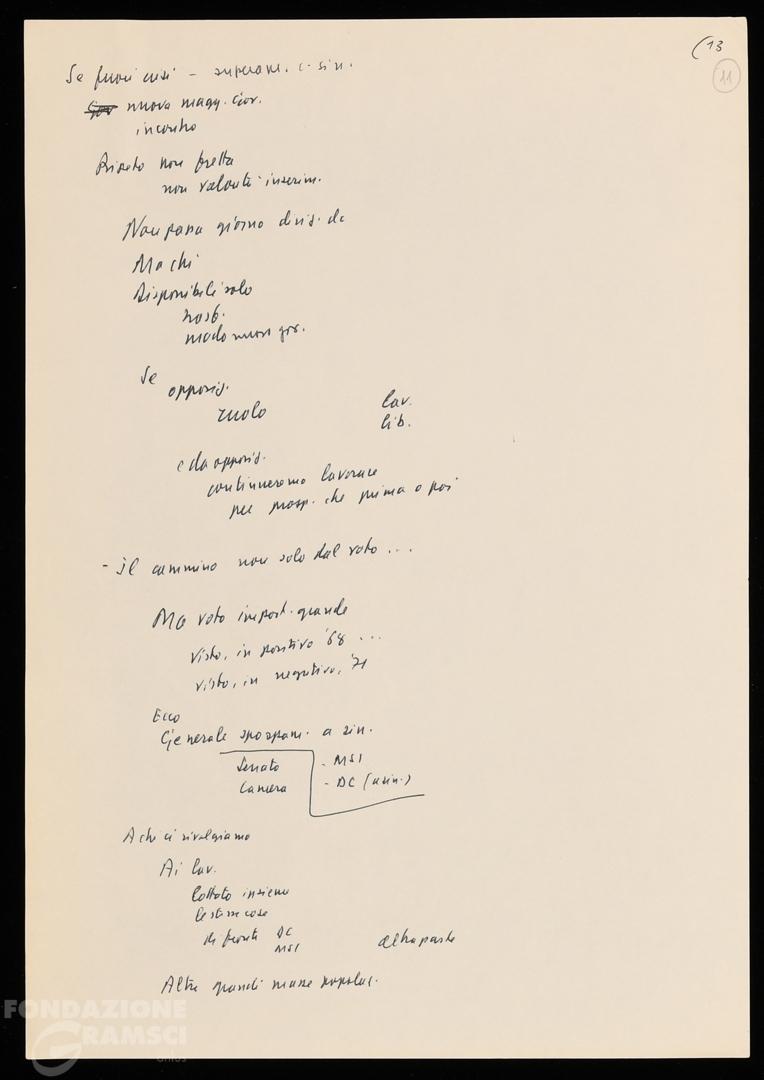 (13
11
Se fuori crisi - superam. c. sin.
Gov nuova magg. Gov.
incontro
Ripeto non fretta
non volontà inserim.
Non passa giorno divis. dc
Ma chi
Disponibili solo
nost.
modo nuovo gov.
Se
opposiz.
ruolo
lav.
lib.
e da opposiz.
continueremo lavorare
per prosp. che prima o poi
- il cammino non solo dal voto ...
Ma voto import. grande
Visto, in positivo '68 ...
visto, in negativo, '71
Ecco
Generale spostam. a sin.
Senato
Camera
- MSI
- DC (a sin.)
A chi ci rivolgiamo
Ai lav.
lottato insieme
le stesse cose
di fronte DC
MSI
altra parte
Altre grandi masse popolar.
FONDAZIONE
GRAMSCI
onlus